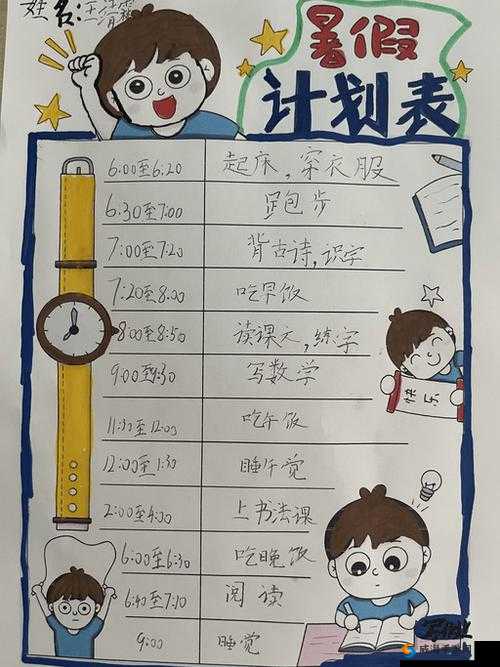 姓名:王清霖
暑假
计划表
6:00至6:20 起床,穿衣服
6:30至7:00 跑步
7:00至7:20 背古诗,识字
7:20至8:00 吃早饭
8:00至8:50 读课文,练字
9:00至9:30 写数学
11:30至12:00 吃午饭
12:00至1:30 睡午觉
2:00至4:00 上书法课
6:00至6:30 吃晚饭
6:40至7:10 阅读
9:00 睡觉
快乐